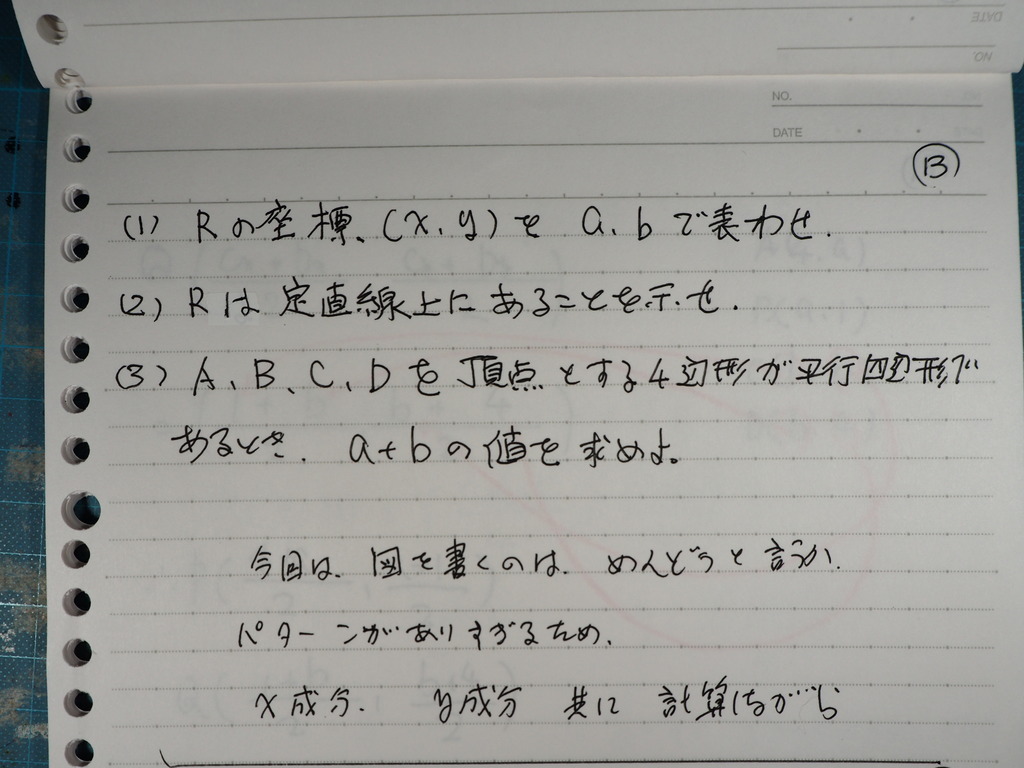 DATE
NO.
NO.
DATE
13
(1) Rの座標、(x, y)を a, bで表わせ.
(2) Rは定直線上にあることを示せ.
(3) A、B、C、Dを頂点とする4辺形が平行四辺形で
あるとき. a+bの値を求めよ。
今回は、図を書くのは、めんどうと言うか、
パターンがありすぎるため、
x成分. y成分 共に 計算しながら